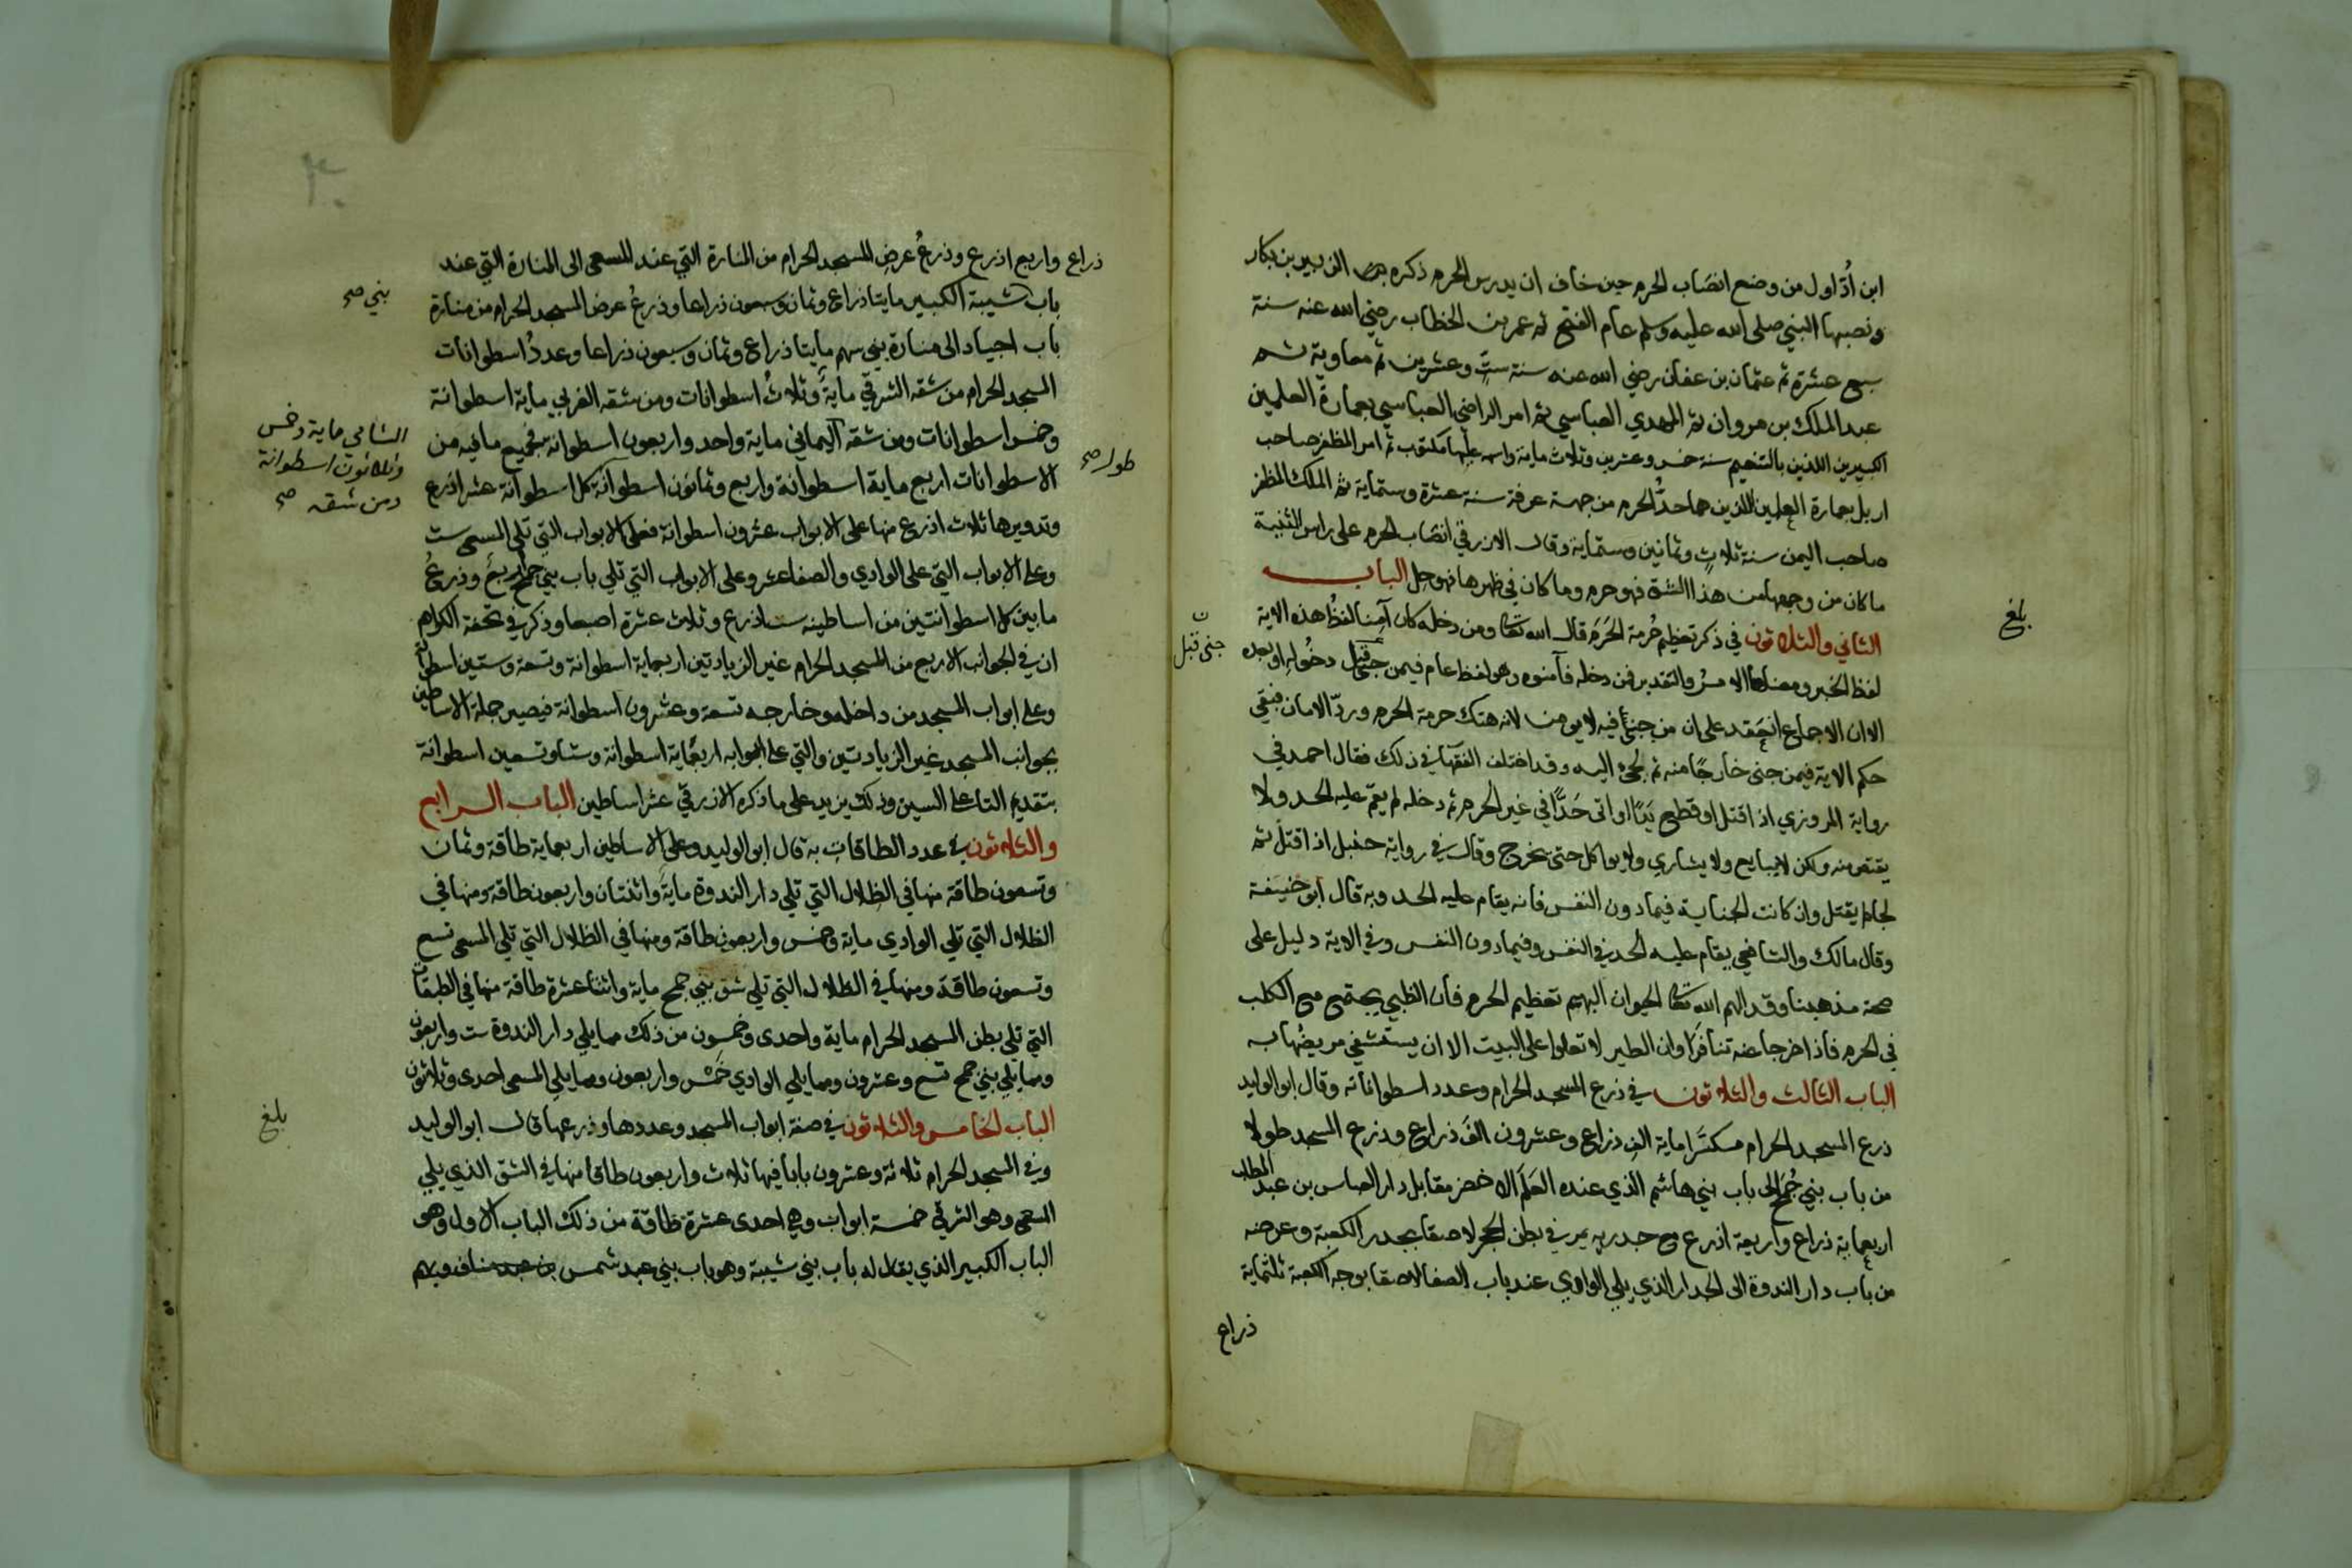 ابن أدّ اول من وضع انصاب الحرم حين خاف ان يدرس الحرم ذكره الزبير بن بكار
ونصبها النبي صلى الله عليه وسلم عام الفتح ثم عمر بن الخطاب رضي الله عنه سنة
سبع عشرة ثم عثمان بن عفان رضي الله عنه سنة ستٍ وعشرين ثم معاوية ثم
عبد الملك بن مروان ثم المهدي العباسي ثم امر الراضي العباسي بعمارة العلمين
الكبيرين اللذين بالتنعيم سنة خمس وعشرين وثلاث ماية واسمه عليهما مكتوب ثم امر المظفر صاحب
اربل بعمارة العلمين اللذين هما حدُّ الحرم من جهة عرفة سنة ستة عشرة وستماية ثم الملك المظفر
صاحب اليمن سنة ثلاثٍ وثمانين وستماية وقال الازرقي انصاب الحرم على راس الثنية
ما كان من وجهها من هذا الشق فهو حرم وما كان في ظهرها فهو حل الباب
الثاني والثلاثون في ذكر تعظيم حُرمة الحَرَم قال الله تعالى ومن دخله كان آمنا لفظ هذه الاية
لفظ الخبر ومعناها الامرُ والتقدير فمن دخله فآمنوه وهو لفظ عام فيمن جنى قبل دخوله او بعده
جنى قبل ن
الا ان الاجماع انعقد على ان من جنى فيه لا يومن لانه هتك حرمة الحرم وردّ الامان فبقي
حكم الاية فيمن جنى خارجًا منه ثم لجئ اليه وقد اختلف الفقهآ في ذلك فقال احمد في
رواية المروزي اذا قتل او قطع يَدًا او اتى حَدًّا في غير الحرم ثم دخله لم يقم عليه الحد ولا
يقتص منه ولكن لا يبايع ولا يشاري ولا يواكل حتى يخرج وقال في رواية حنبل اذا قتل ثم
لجا لم يقتل وان كانت الجناية فيما دون النفس فانه يقام عليه الحد وبه قال ابو حنيفة
وقال مالك والشافعي يقام عليه الحد في النفس وفيما دون النفس وفي الاية دليل على
صحة مذهبنا وقد الهم الله تعالى الحيوان البهيم تعظيم الحرم فان الظبي يجتمع مع الكلب
في الحرم فاذا خرجا عنه تنافرا وان الطير لا تعلوا على البيت الا ان يستشفي مريضُها به
الباب الثالث والثلاثون في ذرع المسجد الحرام وعدد اسطواناته وقال ابو الوليد
ذرع المسجد الحرام مكسّرًا ماية الف ذراع وعشرون الف ذراع وذرع المسجد طولا
من باب بني جُمَح الى باب بني هاشم الذي عنده العَلَم الاخضر مقابل دار العباس بن عبد المطلب
اربعماية ذراع واربعة اذرع مع جدريه يمر في بطن الحجر لاصقا بجدر الكعبة وعرضه
من باب دار الندوة الى الجدار الذي يلي الوادي عند باب الصفا لاصقا بوجه الكعبة ثلثماية
ذراع
بلغ
ذراع واربع اذرع وذرعُ عرض المسجد الحرام من المنارة التي عند المسعى الى المنارة التي عند
باب شيبة الكبير مايتا ذراع وثمان وسبعون ذراعا وذرعُ عرض المسجد الحرام من منارة
بني صح
باب اجياد الى منارة بني سهم مايتا ذراع وثمان وسبعون ذراعا وعددُ اسطوانات
المسجد الحرام من شقه الشرقي مايةٌ وثلاثُ اسطوانات ومن شقه الغربي ماية اسطوانة
وخمس اسطوانات ومن شقه اليماني ماية واحد واربعون اسطوانه فجميع ما فيه من
الشامي ماية وخمس
وثلاثون اسطوانة
ومن شقه صح
الاسطوانات اربع ماية اسطوانة واربع وثمانون اسطوانة كل اسطوانة عشر اذرع
طولا صح
وتدويرها ثلاث اذرع منها على الابواب عشرون اسطوانة فعلى الابواب التي تلي المسعى ست
وعلى الابواب التي على الوادي والصفا عشر وعلى الابواب التي تلي باب بني جمح اربعَ وذرعُ
ما بين كل اسطوانتين من اساطينه ست اذرع وثلاث عشرة اصبعا وذكر في تحفة الكرام
ان في الجوانب الاربع من المسجد الحرام غير الزيادتين اربعماية اسطوانة وتسعة وستين اسطوانة
وعلى ابواب المسجد من داخله وخارجه تسعة وعشرون اسطوانة فيصير جملة الاساطين
بجوانب المسجد غير الزيادتين والتي على ابوابه اربعماية اسطوانة وستا وتسعين اسطوانة
بتقديم التا على السين وذلك يزيد على ما ذكره الازرقي عشر اساطين الباب الرابع
والثلاثون في عدد الطاقات به قال ابو الوليد وعلى الاساطين اربعماية طاقة وثمان
وتسعون طاقة منها في الظلال التي تلي دار الندوة مايةٌ واثنتان واربعون طاقة ومنها في
الظلال التي تلي الوادي ماية وخمس واربعون طاقة ومنها في الظلال التي تلي المسعى تسع
وتسعون طاقة ومنها في الظلال التي تلي شق بني جمح ماية واثنتا عشرة طاقة منها في الطبقات
التي تلي بطن المسجد الحرام ماية واحدى وخمسون من ذلك مما يلي دار الندوة ست واربعون
ومما يلي بني جمح تسع وعشرون ومما يلي الوادي خَمس واربعون ومما يلي المسعى احدى وثلاثون
الباب الخامس والثلاثون في صفة ابواب المسجد وعددها وذرعها قال ابو الوليد
بلغ
وفي المسجد الحرام ثلاثة وعشرون بابا فيها ثلاث واربعون طاقا منها في الشق الذي يلي
المسعى وهو الشرقي خمسة ابواب وهي احدى عشرة طاقة من ذلك الباب الاول وهو
الباب الكبير الذي يقال له باب بني شيبة وهو باب بني عبد شمس بن عبد مناف وبهم